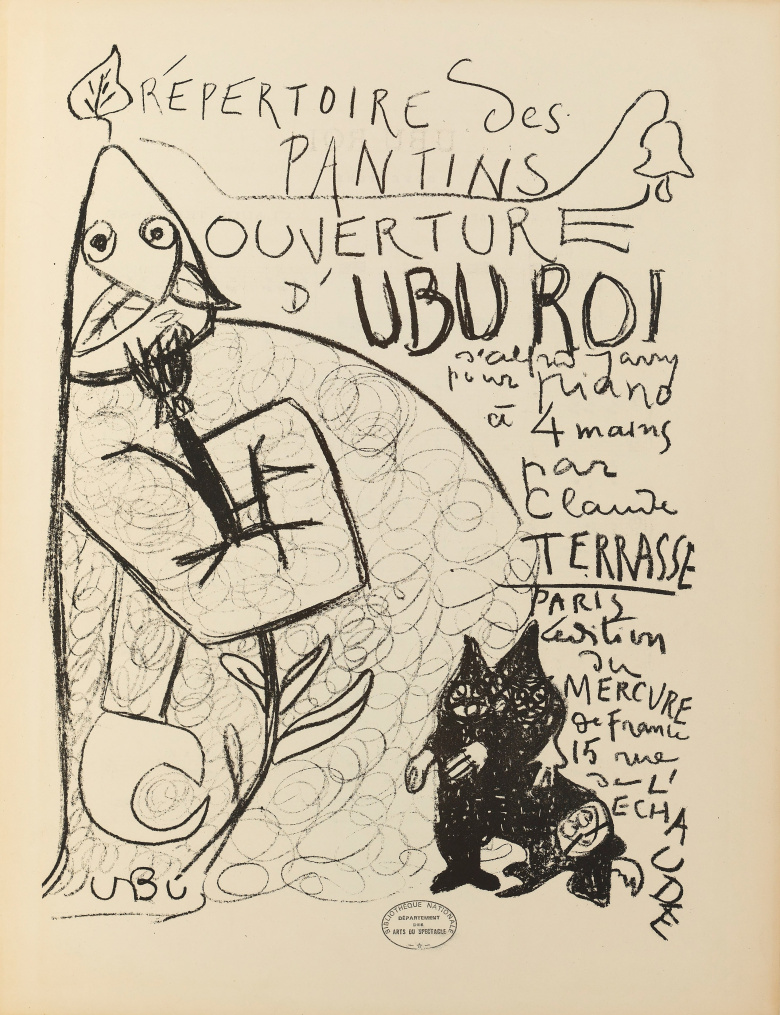 RÉPERTOIRE des
PANTINS
OUVERTURE
D'UBU ROI
d'alfred Jarry
pour piano
à 4 mains
par
Claude
TERRASSE
PARIS
édition
du
MERCURE
de France
15 rue
de L'
ECHAUDÉ
UBU
BIBLIOTHÈQUE NATIONALE
DÉPARTEMENT
DES
ARTS DU SPECTACLE